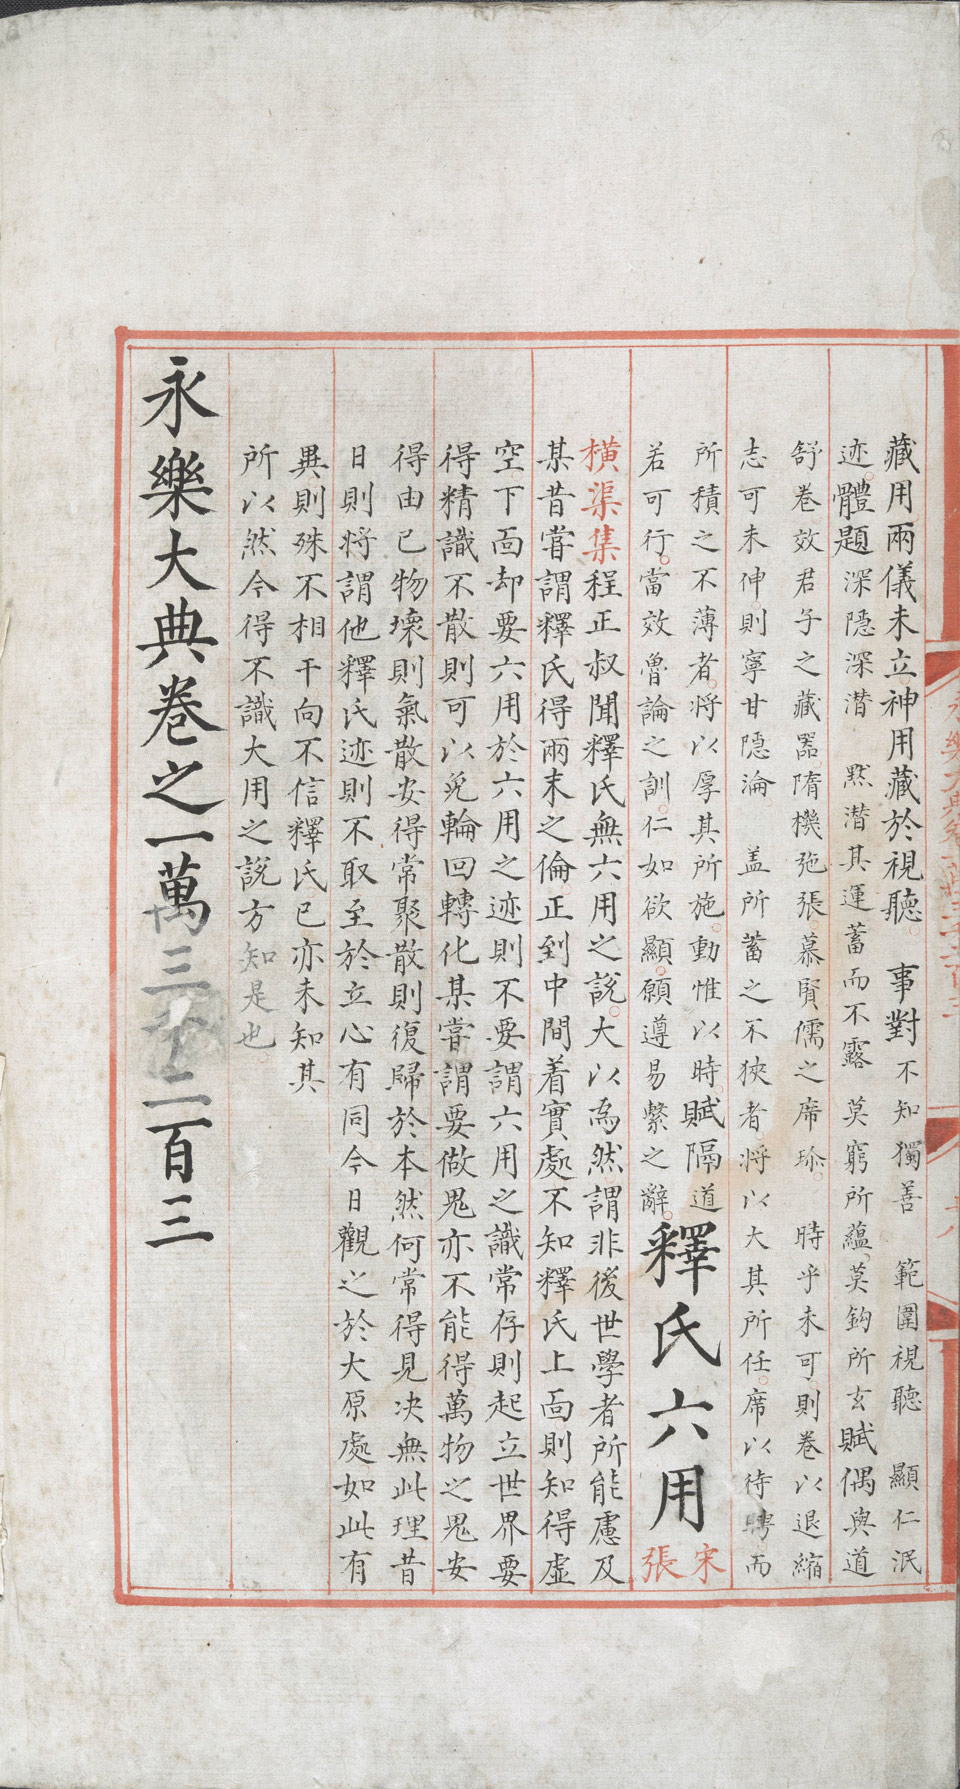 藏用兩儀未立神用藏於視聽。 事對不知獨善 範圍視聽 顯仁泯
迹。體題深隱深潛 黙潛其運蓄而不露 莫窮所蘊。莫鈎所玄賦偶與道
舒卷效君子之藏噐。隋機弛張慕賢儒之席珎。 時乎未可。則卷以退縮
志可未伸則寧甘隱淪 盖所蓄之不狹者。將以大其所任。席以待聘。而
所積之不薄者。將以厚其所施。動惟以時。賦隔道
若可行。當效魯論之訓。仁如欲顯。願遵易繫之辭。
釋氏六用
宋
張
橫渠集程正叔聞釋氏無六用之説。大以為然。謂非後世學者所能慮及
某昔甞謂釋氏得兩末之倫。正到中間着實處不知釋氏上面則知得虛
空下面却要六用於六用之迹則不要謂六用之識常存則起立世界要
得精識不散則可以免輪回轉化某甞謂要做鬼亦不能得萬物之鬼安
得由已物壞則氣散安得常聚散則復歸於本然何常得見决無此理昔
日則將謂他釋氏迹則不取至於立心有同今日觀之於大原處如此有
異則殊不相干向不信釋氏已亦未知其
所以然今得不識大用之説方知是也
永樂大典卷之一萬三千二百三